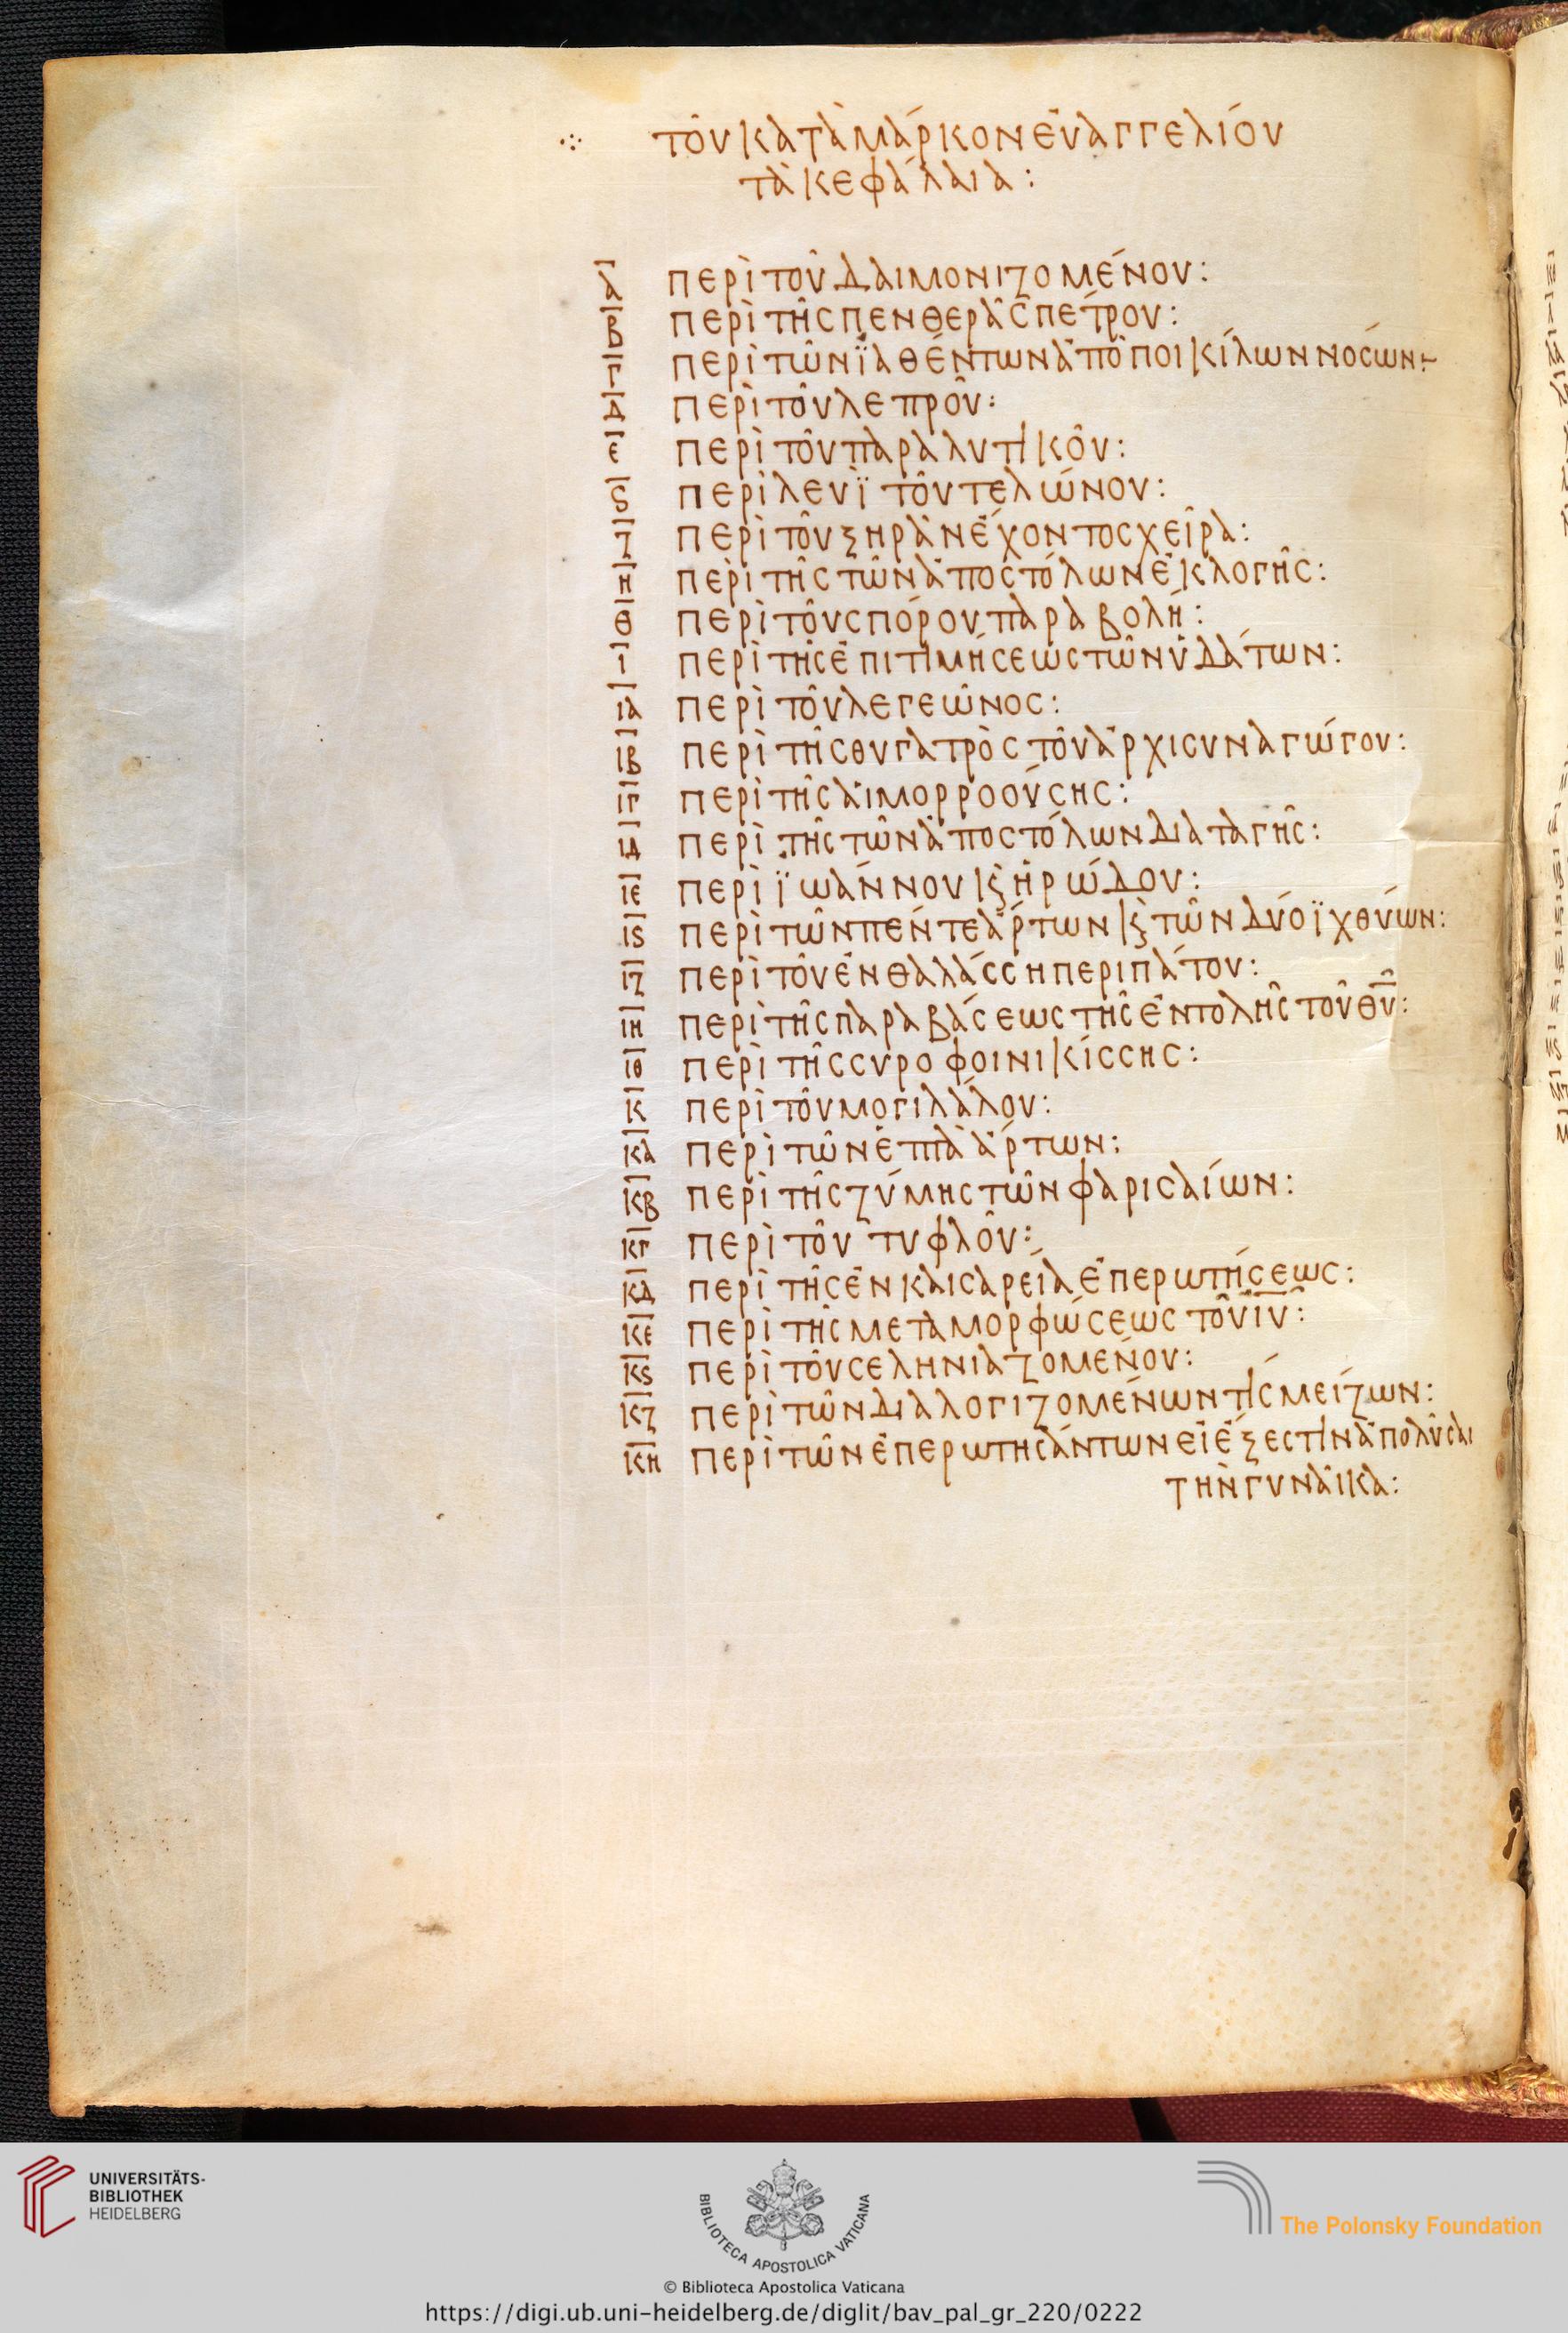 ⁘ τοῦ κατὰ μάρκον ἐυαγγελίου
τὰ κεφάλαια:
α περὶ τοῦ δαιμονιζομένου:
β περὶ τῆς πενθερᾶς πέτρου:
γ περὶ τῶν ϊαθέντων ἀπὸ ποικίλων νοσων:-
δ περὶ τοῦ λεπροῦ:
ε περὶ τοῦ παραλυτικοῦ:
ϛ περὶ λευὶ τοῦ τελώνου:
ζ περὶ τοῦ ξηρὰν ἔχοντος χεῖρα:
η περὶ τῆς τῶν ἀποστόλων ἐκλογῆς:
θ περὶ τοῦ σπόρου παραβολή:
ι περὶ τῆς ἐπιτιμήσεως τῶν ὑδάτων:
ια περὶ τοῦ λεγεῶνος:
ιβ περὶ τῆς θυγατρὸς τοῦ ἀρχισυναγώγου:
ιγ περὶ τῆς ἁιμορροούσης:
ιδ περὶ τῆς τῶν ἀποστόλων διαταγῆς:
ιε περὶ ϊωάννου ϗ ἡρώδου:
ιϛ περὶ τῶν πέντε ἄρτων ϗ τῶν δύο ϊχθύων:
ιζ περὶ τοῦ ἐν θαλάσση περιπάτου:
ιη περὶ τῆς παραβάσεως τῆς ἐντολῆς τοῦ θυ:
ιθ περὶ τῆς συροφοινικίσσης:
κ περὶ τοῦ μογιλάλου:
κα περὶ τῶν ἑπτὰ ἄρτων:
κβ περὶ τῆς ζύμης τῶν φαρισαίων:
κγ περὶ τοῦ τυφλοῦ:
κδ περὶ τῆς ἐν καισαρεία ἐπερωτήσεως:
κε περὶ τῆς μεταμορφώσεως τοῦ ιυ:
κϛ περὶ τοῦ σεληνιαζομένου:
κζ περὶ τῶν διαλογιζομένων τίς μείζων:
κη περὶ τῶν ἐπερωτησάντων εἰ ἔξεστιν ἀπολῦσαι
τὴν γυνᾶικα:
UNIVERSITÄTS-
BIBLIOTHEK
HEIDELBERG
BIBLIOTECA APOSTOLICA VATICANA
The Polonsky Foundation
© Biblioteca Apostolica Vaticana
https://digi.ub.uni-heidelberg.de/diglit/bav_pal_gr_220/0222